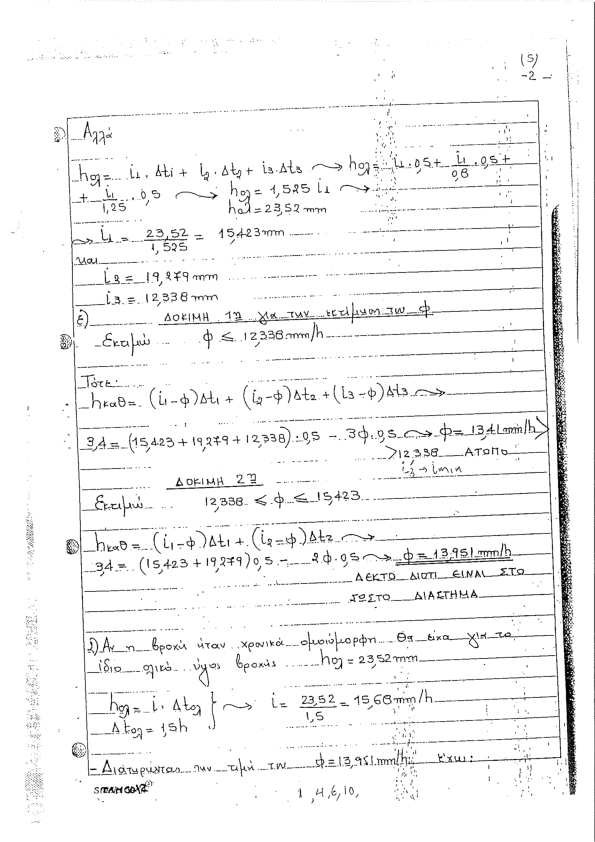 (5)
-2-
Αλλά
hολ= i1 . Δt1 + i2 . Δt2 + i3 . Δt3 ⤳ hολ= i1 . 0,5 + i1/0,8 . 0,5 +
+ i1/1,25 . 0,5 ⤳ hολ = 1,525 i1 ⤳
hολ = 23,52 mm
⤳ i1 = 23,52/1,525 = 15,423 mm
και
i2 = 19,279 mm
i3 = 12,338 mm
ΔΟΚΙΜΗ 1η για την εκτίμηση του φ
Εκτιμώ φ ≤ 12,338 mm/h
Τότε:
hκαθ= (i1-φ)Δt1 + (i2-φ)Δt2 + (i3-φ)Δt3 ⤳
3,4= (15,423 + 19,279 + 12,338) . 0,5 - 3φ . 0,5 ⤳ φ = 13,41 mm/h >
> 12,338 ΑΤΟΠΟ
i3 → imin
ΔΟΚΙΜΗ 2η
Εκτιμώ 12,338 ≤ φ ≤ 15,423
hκαθ = (i1-φ)Δt1 + (i2-φ)Δt2 ⤳
3,4 = (15,423 + 19,279) 0,5 - 2φ . 0,5 ⤳ φ = 13,951 mm/h
ΔΕΚΤΟ ΔΙΟΤΙ ΕΙΝΑΙ ΣΤΟ
ΣΩΣΤΟ ΔΙΑΣΤΗΜΑ
2) Αν η βροχή ήταν χρονικά ομοιόμορφη θα είχα για το
ίδιο ολικό ύψος βροχής hολ = 23,52 mm
hολ= i . Δtολ } ⤳ i = 23,52/1,5 = 15,68 mm/h
Δtολ = 1,5h
- Διατηρώντας την τιμή του φ = 13,951 mm/h έχω:
1 , 4, 6, 10,